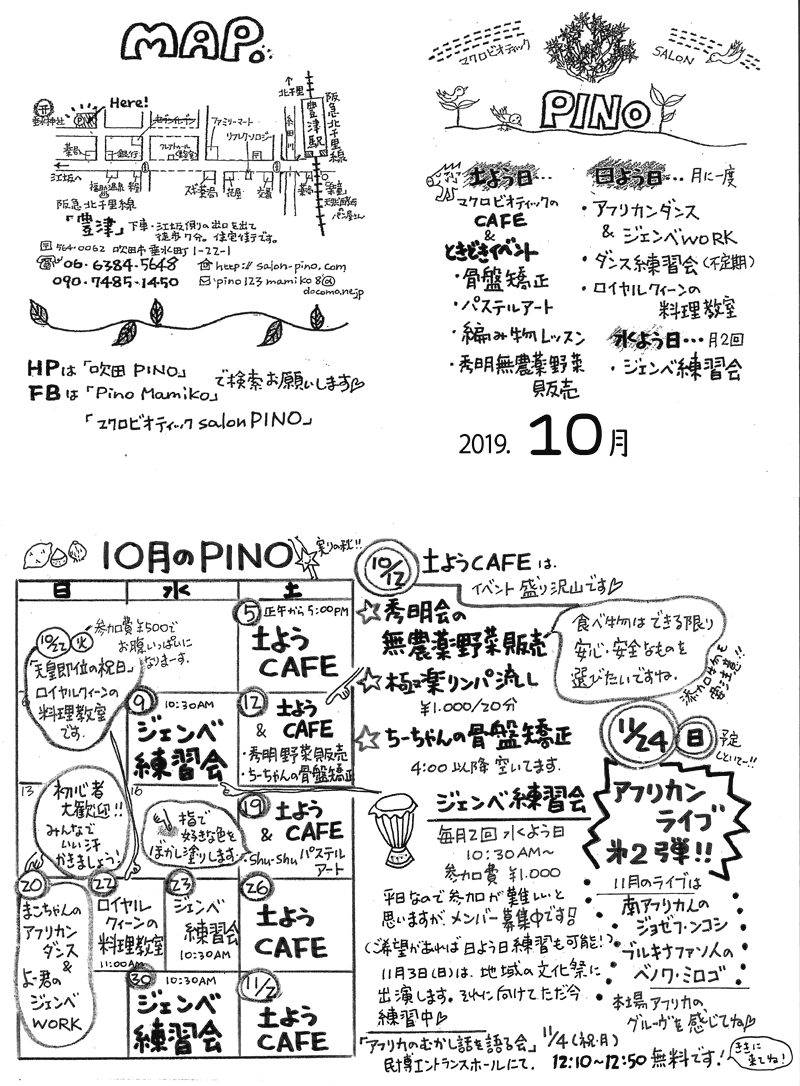 MAP.
Here!
垂水神社
PINO
ファミリーマート
リフレクソロジー
薬局
銀行
江坂へ
スギ薬局
花屋
交番
薬局
↑北千里
糸田川
豊津駅
阪急北千里線
パン屋さん
阪急北千里線
「豊津」下車・江坂側の出口を出て
徒歩7分。住宅街です。
〒564-0062 吹田市垂水町1-22-1
06-6384-5648
http://salon-pino.com
090-7485-1450
pino123mamiko8@
docomo.ne.jp
HPは「吹田 PINO」
FBは「Pino Mamiko」
で検索お願いします♡
「マクロビオティック salon PINO」
マクロビオティック
SALON
PINO
土よう日…
マクロビオティックの
CAFE
&
ときどきイベント
・骨盤矯正
・パステルアート
・編み物レッスン
・秀明無農薬野菜
販売
日よう日…月に一度
・アフリカンダンス
& ジェンベWORK
・ダンス練習会(不定期)
・ロイヤルクィーンの
料理教室
水よう日…月2回
・ジェンベ練習会
2019. 10月
10月のPINO
実りの秋!!
日
水
土
10/22 火
参加費¥500で
お腹いっぱいに
なります。
「天皇即位の祝日」
ロイヤルクィーンの
料理教室
です。
5 正午から5:00PM
土よう
CAFE
9 10:30AM
ジェンベ
練習会
12 土よう
& CAFE
・秀明野菜販売
・ちーちゃんの骨盤矯正
13
初心者
大歓迎!!
みんなで
いい汗
かきましょう!
16
指で
好きな色を
ぼかし塗りします。
19 土よう
& CAFE
・Shu-shuパステル
アート
20
まこちゃんの
アフリカン
ダンス
&
よー君の
ジェンベ
WORK
22
ロイヤル
クィーンの
料理教室
11:00AM
23
ジェンベ
練習会
10:30AM
26
土よう
CAFE
30 10:30AM
ジェンベ
練習会
11/2
土よう
CAFE
10/12 土ようCAFEは、
イベント盛り沢山です♡
☆秀明会の
無農薬野菜販売
☆極楽リンパ流し
¥1.000/20分
☆ちーちゃんの骨盤矯正
4:00以降空いてます。
食べ物はできる限り
安心・安全なものを
選びたいですね。
添加物も
要注意!!
ジェンベ練習会
毎月2回水よう日
10:30AM~
参加費¥1.000
平日なので参加が難しいと
思いますが、メンバー募集中です!!
(ご希望があれば日よう日練習も可能!)
11月3日(日)は、地域の文化祭に
出演します。それに向けてただ今
練習中♡
11/24 日
予定
しといてー!!
アフリカン
ライブ
第2弾!!
11月のライブは
南アフリカ人の
ジョゼフ・ンコシ
ブルキナファソ人の
ベノワ・ミロゴ
本場アフリカの
グルーヴを感じてね♡
「アフリカのむかし話を語る会」11/4(祝・月)
民博エントランスホールにて。 12:10~12:50 無料です!
ききに
来てね!